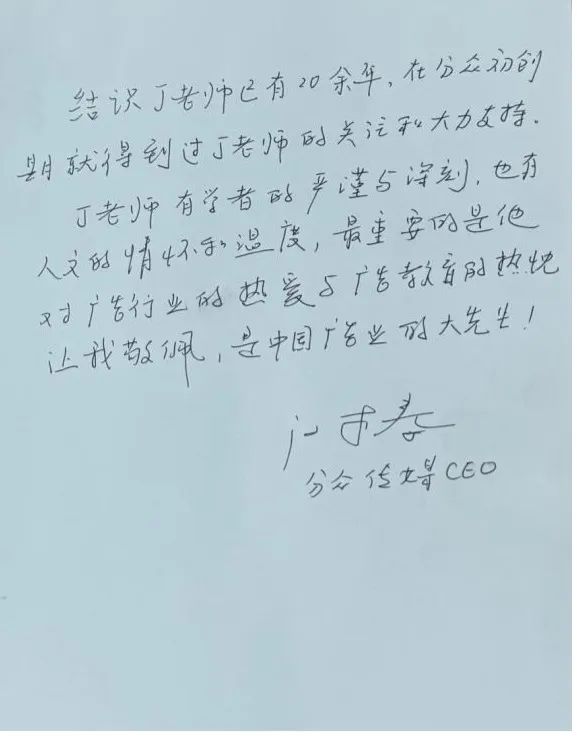 结识丁老师已有20余年，在分众初创
期就得到过丁老师的关注和大力支持。
丁老师有学者的严谨与深刻，也有
人文的情怀和温度，最重要的是他
对广告行业的热爱与广告教育的热忱
让我敬佩，是中国广告业的大先生！
江南春
分众传媒CEO